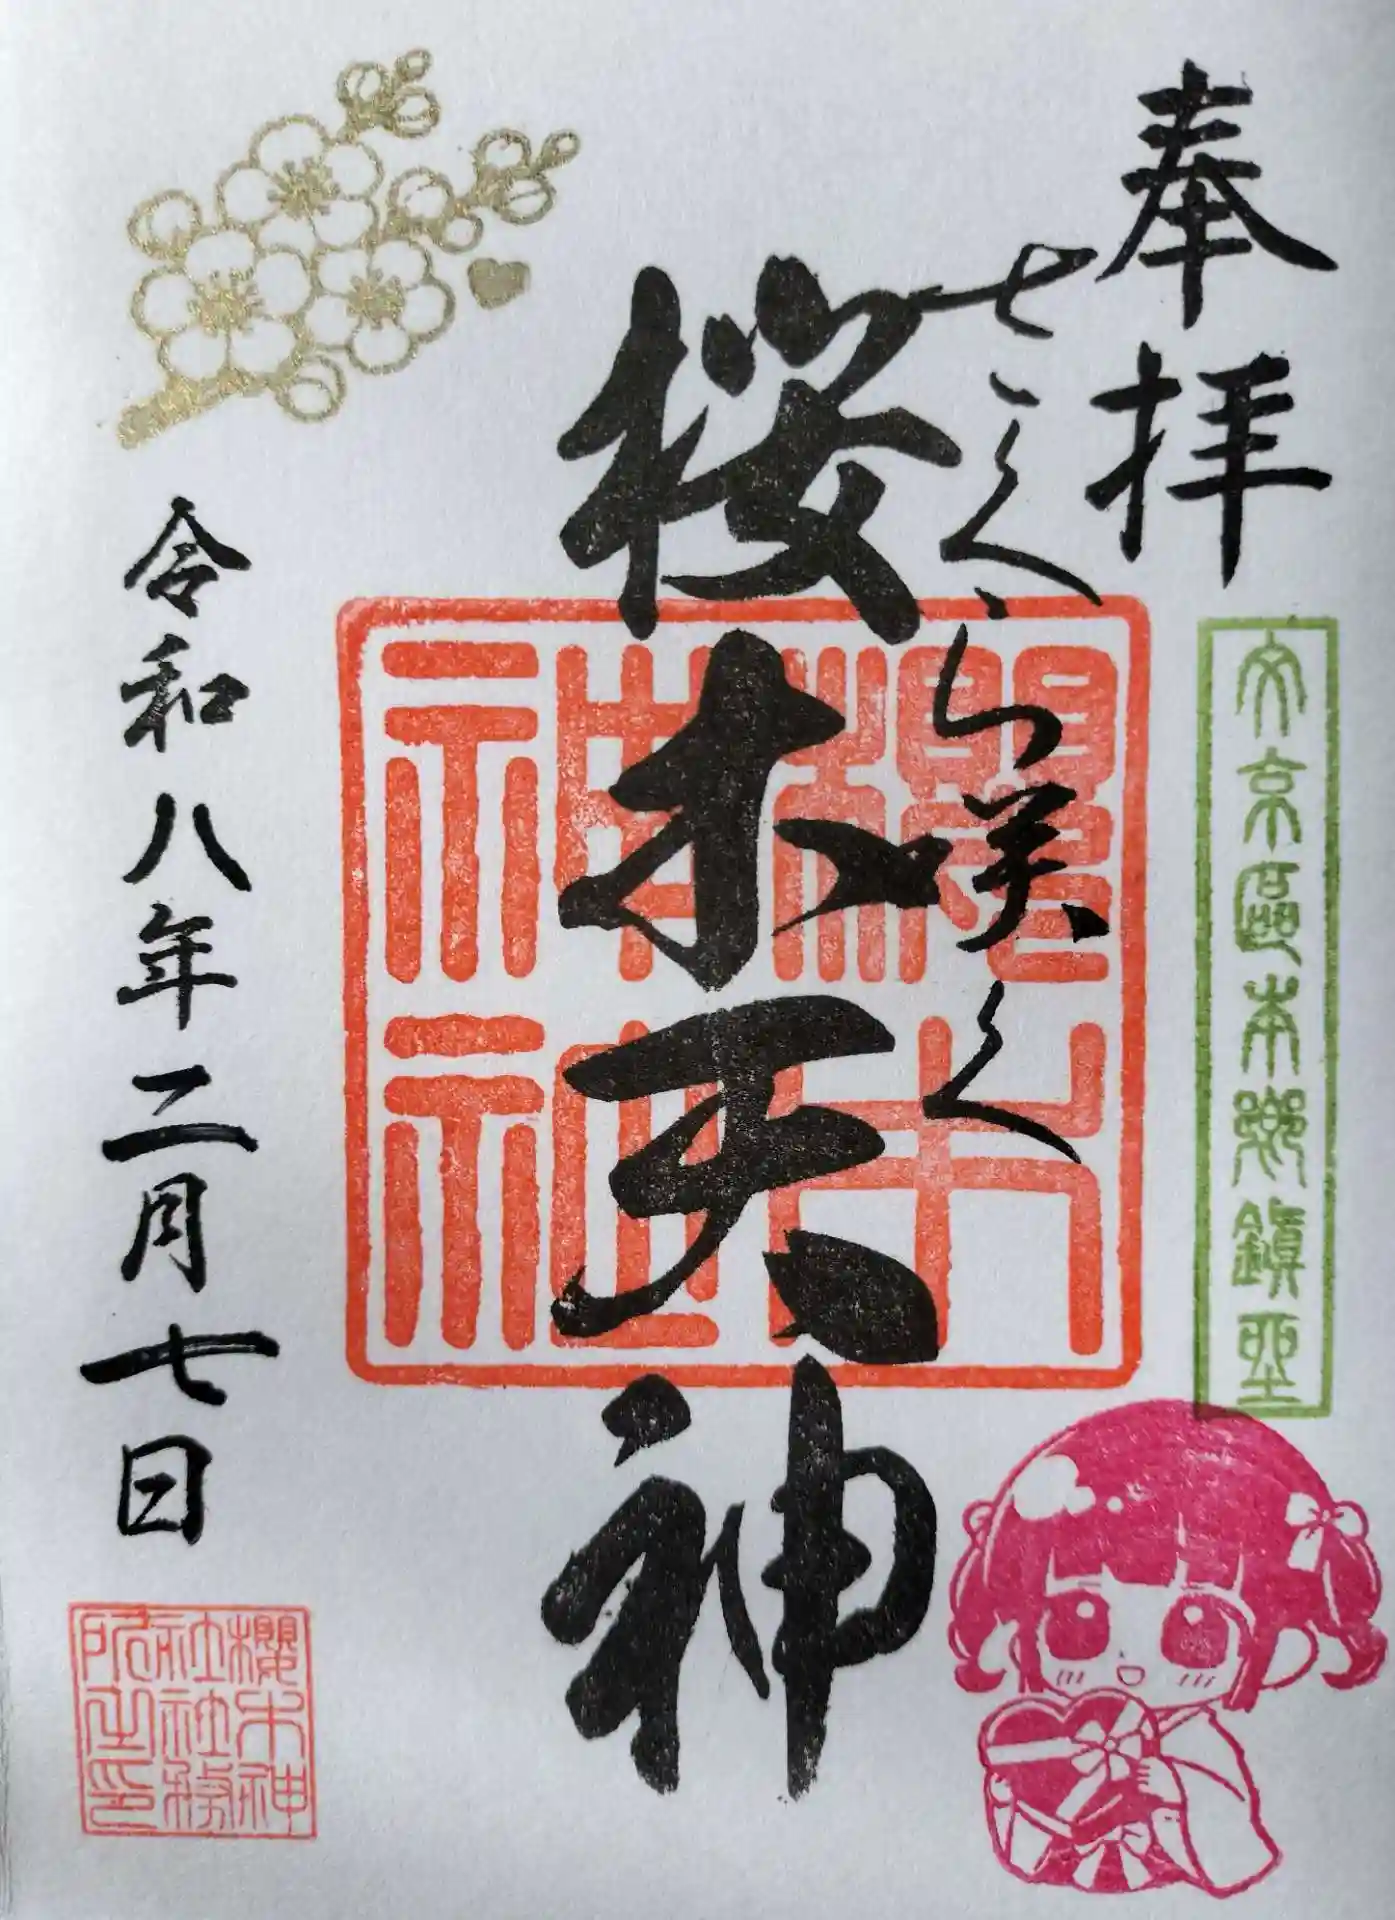 奉拝
文京區本郷鎮坐
さくら咲く
桜木天神
櫻木
神社
令和八年二月七日
櫻木神
社社務
所之印